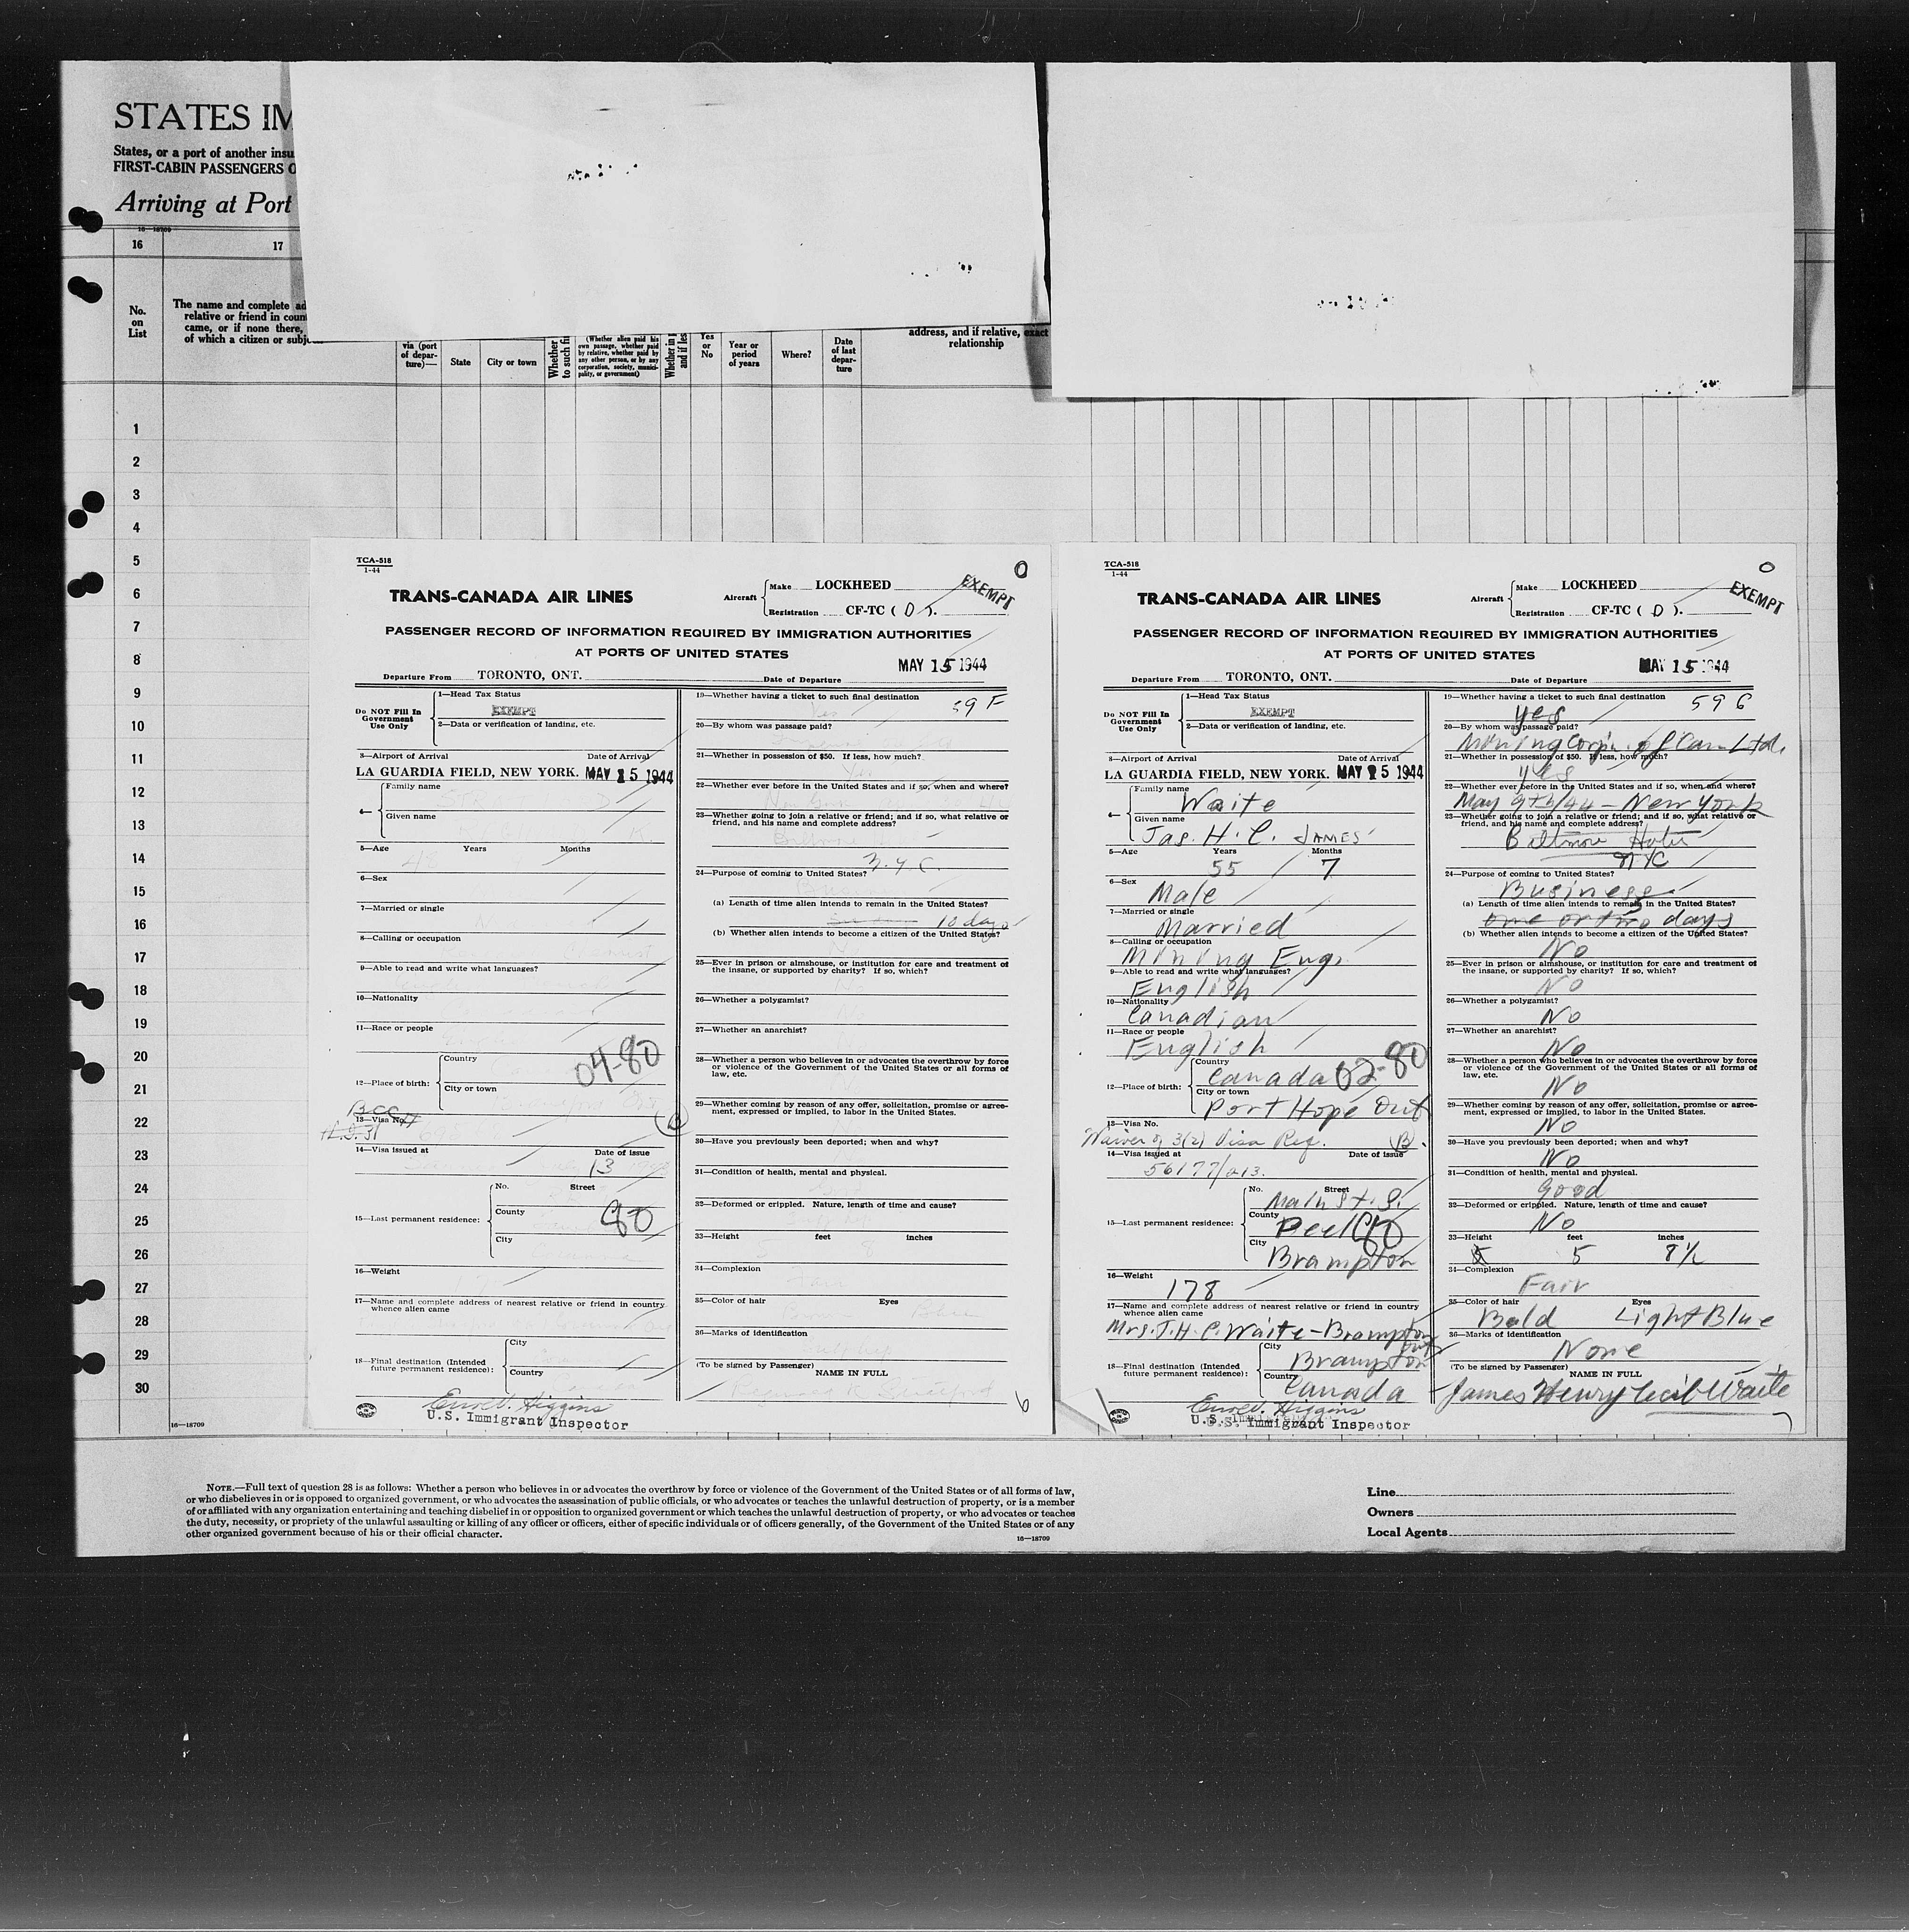 STATES IM
States, or a port of another insu
FIRST-CABIN PASSENGERS O
Arriving at Port
16—18709
16
17
No.
on
List
The name and complete ad
relative or friend in coun
came, or if none there,
of which a citizen or subje
via (port
of depar-
ture)—
State
City or town
Whether
to such fi
(Whether alien paid his
own passage, whether paid
by relative, whether paid by
any other person, or by any
corporation, society, munici-
pality, or government)
Whether in
and if les
Yes
or
No
Year or
period
of years
Where?
Date
of last
depar-
ture
address, and if relative, exact
relationship
1
2
3
4
5
6
7
8
9
10
11
12
13
14
15
16
17
18
19
20
21
22
23
24
25
26
27
28
29
30
16—18709
TCA-518
1-44
O
TRANS-CANADA AIR LINES
Aircraft
Make LOCKHEED
Registration CF-TC ( D ).
EXEMPT
PASSENGER RECORD OF INFORMATION REQUIRED BY IMMIGRATION AUTHORITIES
AT PORTS OF UNITED STATES
MAY 15 1944
Departure From TORONTO, ONT. Date of Departure
Do NOT Fill In
Government
Use Only
1—Head Tax Status
EXEMPT
2—Data or verification of landing, etc.
3—Airport of Arrival Date of Arrival
LA GUARDIA FIELD, NEW YORK. MAY 15 1944
4—
Family name
Given name
5—Age Years Months
6—Sex
7—Married or single
8—Calling or occupation
9—Able to read and write what languages?
10—Nationality
11—Race or people
04-80
12—Place of birth:
Country
City or town
13—Visa No.
B
14—Visa issued at Date of issue
13
15—Last permanent residence:
No. Street
County
80
City
16—Weight
17—Name and complete address of nearest relative or friend in country
whence alien came
18—Final destination (Intended
future permanent residence):
City
Country
Higgins
U.S. Immigrant Inspector
19—Whether having a ticket to such final destination
59 F
20—By whom was passage paid?
21—Whether in possession of $50. If less, how much?
22—Whether ever before in the United States and if so, when and where?
23—Whether going to join a relative or friend; and if so, what relative or
friend, and his name and complete address?
N.Y.C.
24—Purpose of coming to United States?
Business
(a) Length of time alien intends to remain in the United States?
10 days
(b) Whether alien intends to become a citizen of the United States?
25—Ever in prison or almshouse, or institution for care and treatment of
the insane, or supported by charity? If so, which?
26—Whether a polygamist?
27—Whether an anarchist?
28—Whether a person who believes in or advocates the overthrow by force
or violence of the Government of the United States or all forms of
law, etc.
29—Whether coming by reason of any offer, solicitation, promise or agree-
ment, expressed or implied, to labor in the United States.
30—Have you previously been deported; when and why?
31—Condition of health, mental and physical.
32—Deformed or crippled. Nature, length of time and cause?
33—Height feet inches
34—Complexion
35—Color of hair Eyes
Blue
36—Marks of identification
(To be signed by Passenger) NAME IN FULL
6
TCA-518
1-44
O
TRANS-CANADA AIR LINES
Aircraft
Make LOCKHEED
Registration CF-TC ( D ).
EXEMPT
PASSENGER RECORD OF INFORMATION REQUIRED BY IMMIGRATION AUTHORITIES
AT PORTS OF UNITED STATES
MAY 15 1944
Departure From TORONTO, ONT. Date of Departure
Do NOT Fill In
Government
Use Only
1—Head Tax Status
EXEMPT
2—Data or verification of landing, etc.
3—Airport of Arrival Date of Arrival
LA GUARDIA FIELD, NEW YORK. MAY 15 1944
4—
Family name
Waite
Given name
Jas. H. C. JAMES
5—Age Years Months
55 7
6—Sex
Male
7—Married or single
Married
8—Calling or occupation
Mining Engr
9—Able to read and write what languages?
English
10—Nationality
Canadian
11—Race or people
English
12—Place of birth:
Country
Canada 02-80
City or town
Port Hope Ont
13—Visa No.
Waiver of 3(2) Visa Req. B.
14—Visa issued at Date of issue
56177/213.
15—Last permanent residence:
No. Street
Main St. S.
County
Peel 80
City
Brampton
16—Weight
178
17—Name and complete address of nearest relative or friend in country
whence alien came
Mrs. J. H. C. Waite - Brampton Ont
18—Final destination (Intended
future permanent residence):
City
Brampton
Country
Canada
Higgins
U.S. Immigrant Inspector
19—Whether having a ticket to such final destination
yes 59 G
20—By whom was passage paid?
Mining Corp'n. of Can. Ltd.
21—Whether in possession of $50. If less, how much?
yes
22—Whether ever before in the United States and if so, when and where?
May 9th/44 - New York
23—Whether going to join a relative or friend; and if so, what relative or
friend, and his name and complete address?
Biltmore Hotel
NYC
24—Purpose of coming to United States?
Business
(a) Length of time alien intends to remain in the United States?
one or two days
(b) Whether alien intends to become a citizen of the United States?
No
25—Ever in prison or almshouse, or institution for care and treatment of
the insane, or supported by charity? If so, which?
No
26—Whether a polygamist?
No
27—Whether an anarchist?
No
28—Whether a person who believes in or advocates the overthrow by force
or violence of the Government of the United States or all forms of
law, etc.
No
29—Whether coming by reason of any offer, solicitation, promise or agree-
ment, expressed or implied, to labor in the United States.
No
30—Have you previously been deported; when and why?
No
31—Condition of health, mental and physical.
Good
32—Deformed or crippled. Nature, length of time and cause?
No
33—Height feet inches
5 8½
34—Complexion
Fair
35—Color of hair Eyes
Bald Light Blue
36—Marks of identification
None
(To be signed by Passenger) NAME IN FULL
James Henry Cecil Waite
7
NOTE.—Full text of question 28 is as follows: Whether a person who believes in or advocates the overthrow by force or violence of the Government of the United States or of all forms of law,
or who disbelieves in or is opposed to organized government, or who advocates the assassination of public officials, or who advocates or teaches the unlawful destruction of property, or is a member
of or affiliated with any organization entertaining and teaching disbelief in or opposition to organized government or which teaches the unlawful destruction of property, or who advocates or teaches
the duty, necessity, or propriety of the unlawful assaulting or killing of any officer or officers, either of specific individuals or of officers generally, of the Government of the United States or of any
other organized government because of his or their official character.
16—18709
Line
Owners
Local Agents